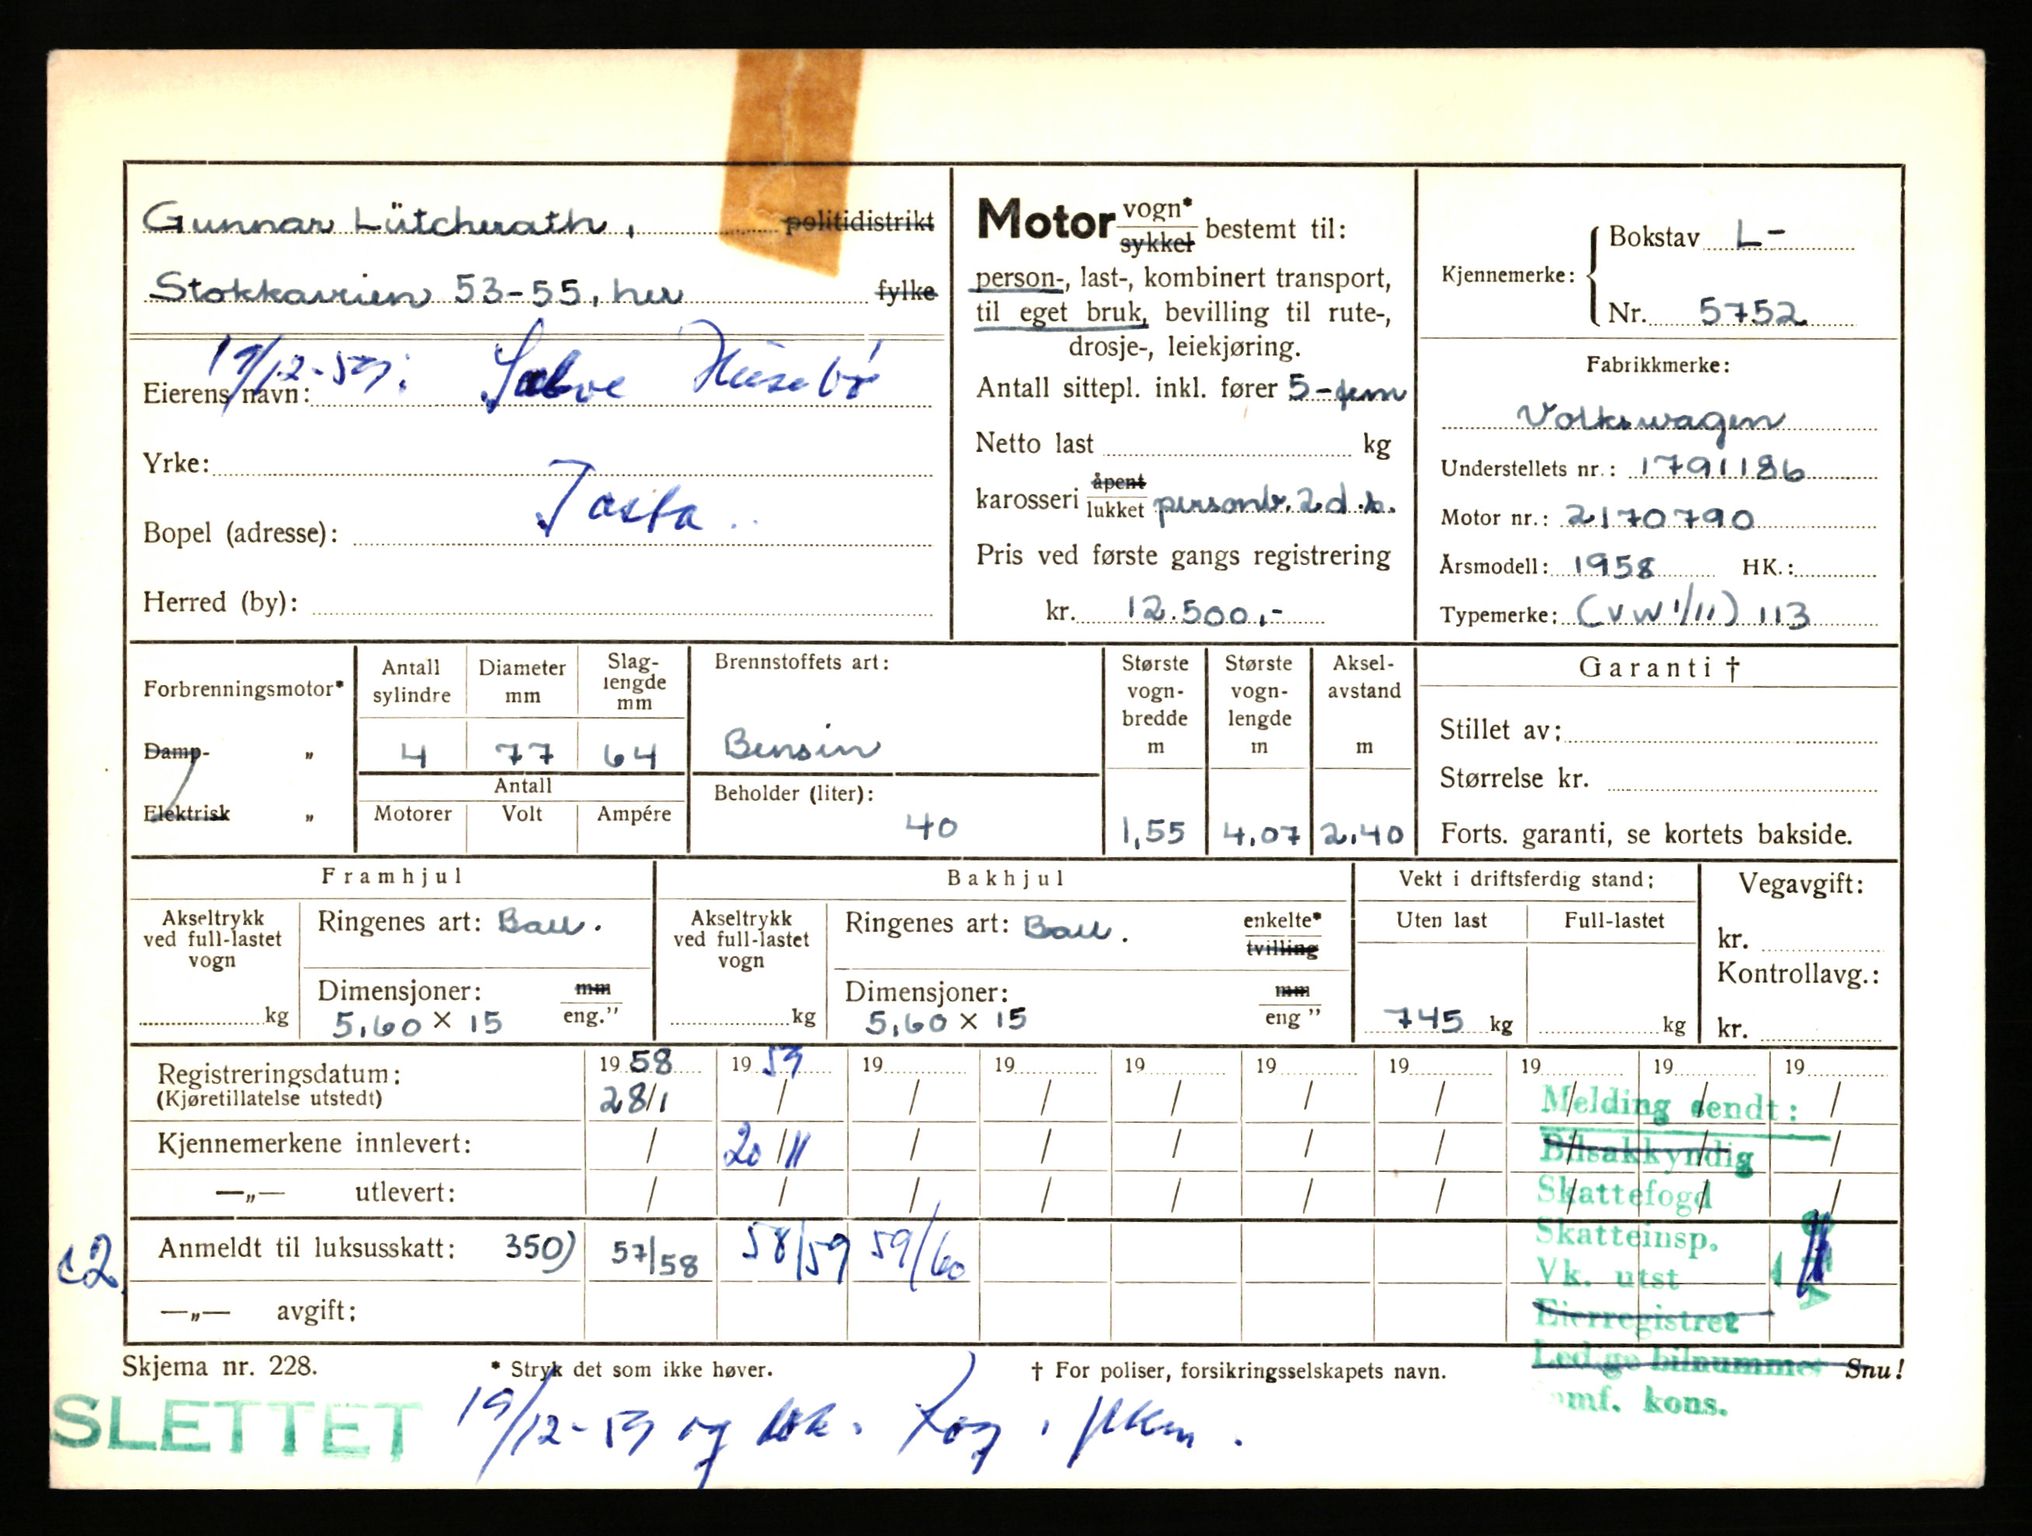 Gunnar Lütcherath, politidistrikt
Stokkaveien 53-55, her fylke
19/12-59: Salve Husebø
Eierens navn:
Yrke:
Tasta
Bopel (adresse):
Herred (by):
Motor vogn* sykkel bestemt til:
person-, last-, kombinert transport,
til eget bruk, bevilling til rute-,
drosje-, leiekjøring.
Antall sittepl. inkl. fører 5-fem
Netto last kg
karosseri åpent lukket personb. 2 d.s.
Pris ved første gangs registrering
kr. 12.500,-
Kjennemerke: Bokstav L-
Nr. 5752
Fabrikkmerke:
Volkswagen
Understellets nr.: 1791186
Motor nr.: 2170790
Årsmodell: 1958 HK.:
Typemerke: (VW 1/11) 113
Forbrenningsmotor*
Damp- „
Elektrisk „
Antall sylindre Diameter mm Slag-lengde mm
4 77 64
Antall
Motorer Volt Ampére
Brennstoffets art:
Bensin
Beholder (liter):
40
Største vogn-bredde m
1,55
Største vogn-lengde m
4,07
Aksel-avstand m
2,40
Garanti †
Stillet av:
Størrelse kr.
Forts. garanti, se kortets bakside.
Framhjul
Akseltrykk ved full-lastet vogn
kg
Ringenes art: Ball.
Dimensjoner: mm eng.”
5,60 × 15
Bakhjul
Akseltrykk ved full-lastet vogn
kg
Ringenes art: Ball. enkelte* tvilling
Dimensjoner: mm eng ”
5,60 × 15
Vekt i driftsferdig stand:
Uten last Full-lastet
745 kg kg
Vegavgift:
kr.
Kontrollavg.:
kr.
Registreringsdatum: 1958 1959 19 19 19 19 19 19 19 19
(Kjøretillatelse utstedt) 28/1 / / / / / / / / /
Kjennemerkene innlevert: / 20/11 / / / / / / / /
—„— utlevert: / / / / / / / / / /
c2 Anmeldt til luksusskatt: 350) 57/58 58/59 59/60
—„— avgift:
Melding sendt:
Bilsakkyndig
Skattefogd
Skatteinsp.
Vk. utst
Eierregistret
Ledige bilnummer
omf. kons.
Skjema nr. 228. * Stryk det som ikke høver. † For poliser, forsikringsselskapets navn. Snu!
SLETTET 19/12-59 og